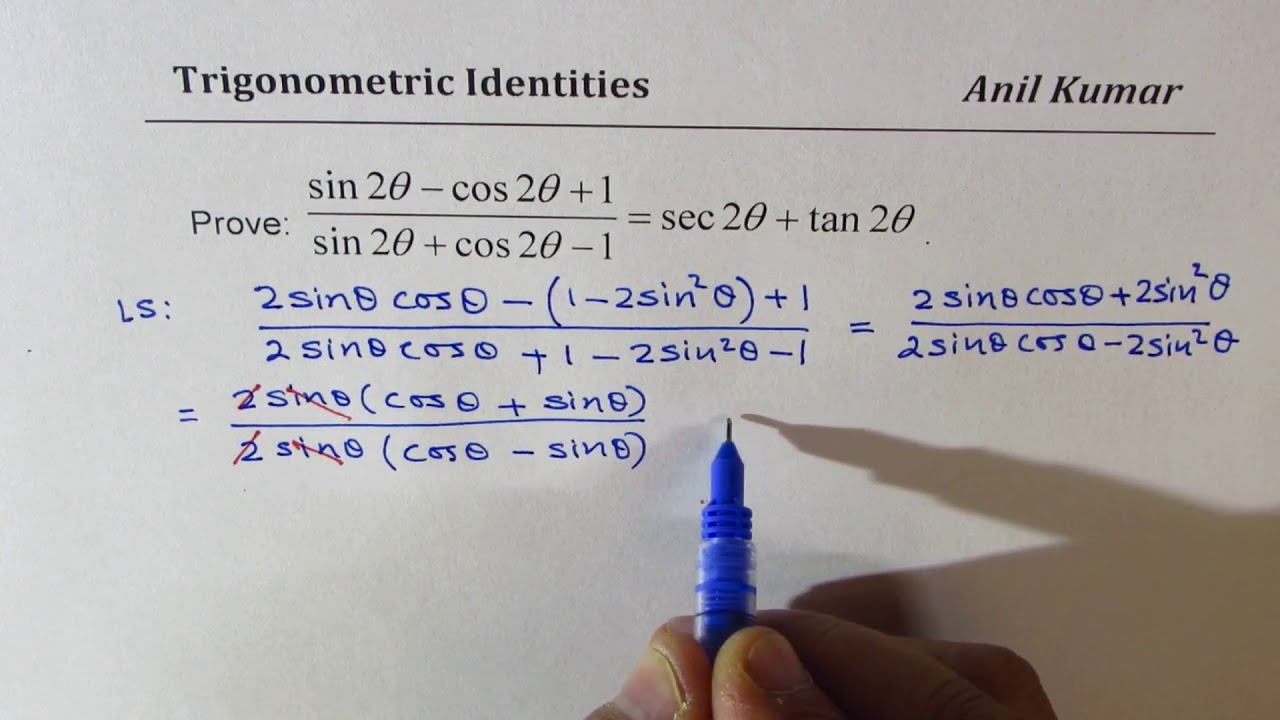 Trigonometric Identities Anil Kumar
Prove: (sin 2θ − cos 2θ + 1)/(sin 2θ + cos 2θ − 1) = sec 2θ + tan 2θ .
LS: (2 sinθ cosθ − (1 − 2sin²θ) + 1)/(2 sinθ cosθ + 1 − 2sin²θ − 1) = (2 sinθ cosθ + 2sin²θ)/(2 sinθ cosθ − 2sin²θ)
= (2 sinθ (cosθ + sinθ))/(2 sinθ (cosθ − sinθ))